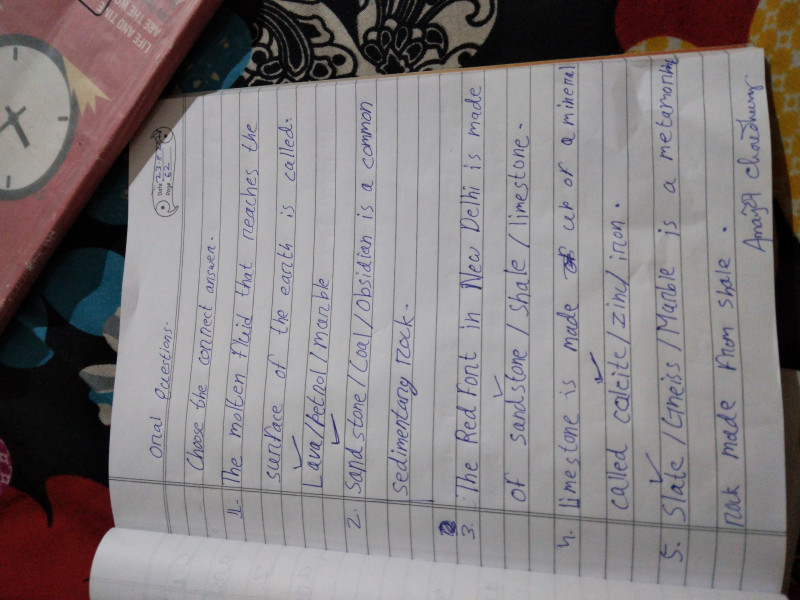 LIFE AND TIME
ARE THE WO
Date
Page 62
Oral Questions.
Choose the correct answer.
1. The molten fluid that reaches the
surface of the earth is called.
Lava/petrol/marble
2. Sand stone/Coal/Obsidian is a common
sedimentary rock.
3. The Red Font in New Delhi is made
of sandstone/Shale/limestone.
4. limestone is made up or a mineral
called calcite/zinc/iron.
5. Slate/Gneiss/Marble is a
rock made from shale.